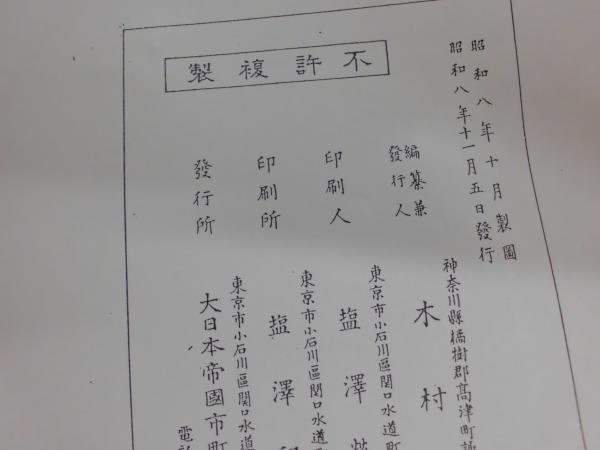 昭和八年十月製圖
昭和八年十一月五日發行
不許複製
編纂兼
發行人
神奈川縣橘樹郡高津町
木村
印刷人
東京市小石川區関口水道町
塩澤
印刷所
東京市小石川區関口水道
塩澤
發行所
東京市小石川區関口水道
大日本帝國市町